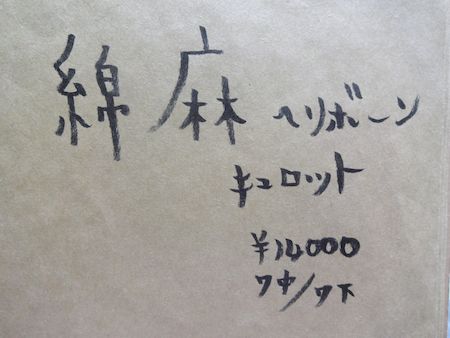 綿麻 ヘリボーン
キュロット
¥14000
7中/7下